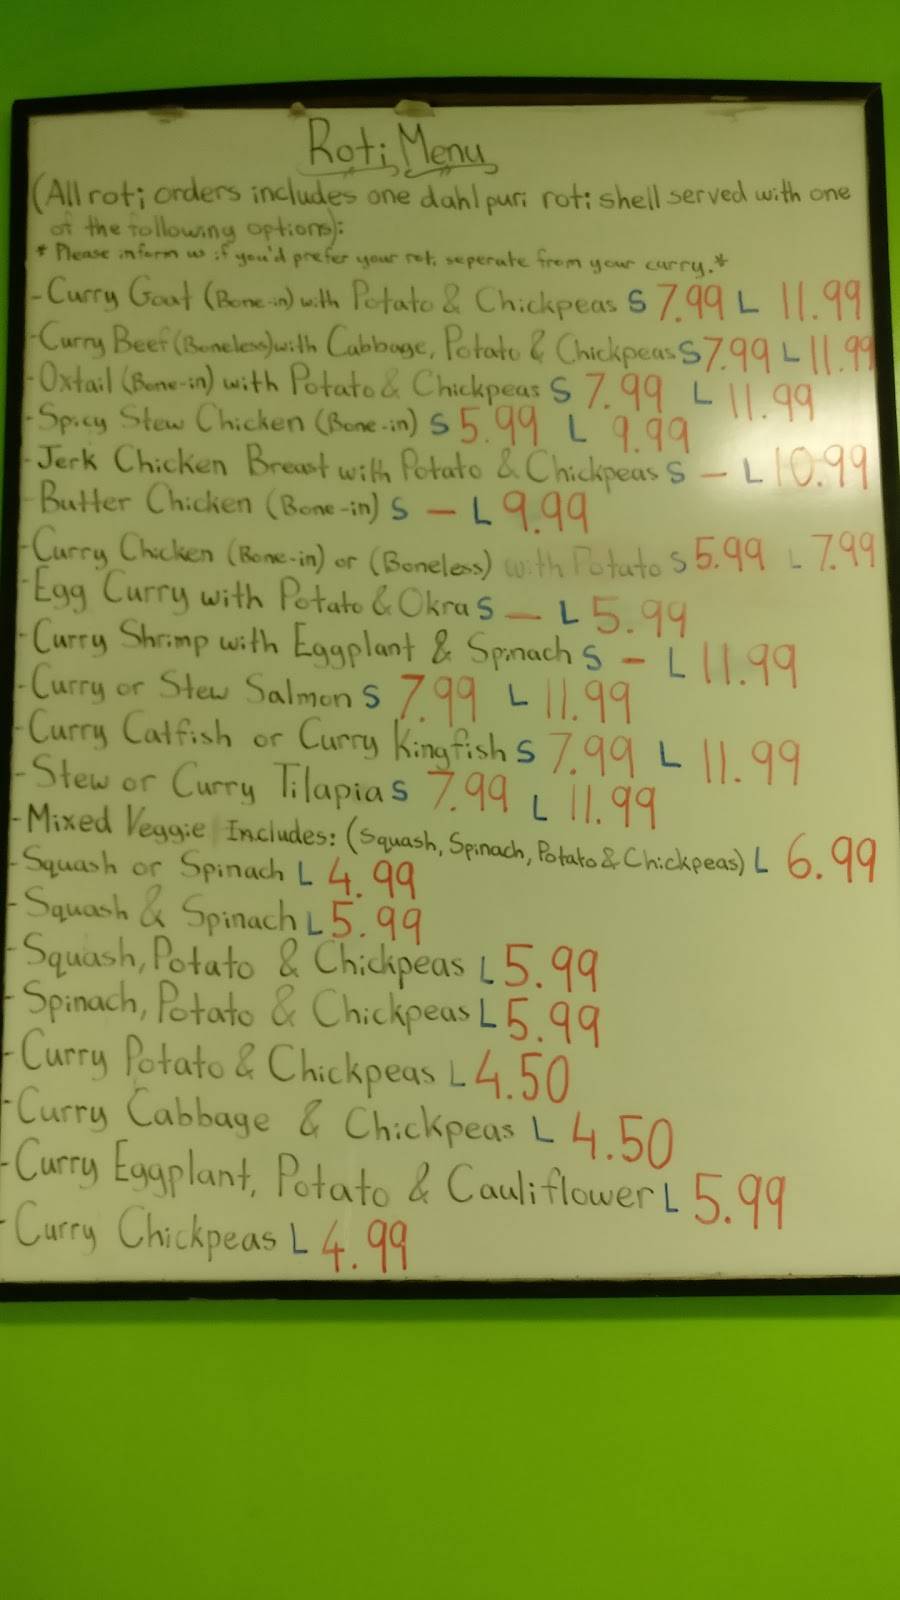 Roti Menu
(All roti orders includes one dahl puri roti shell served with one
of the following options):
* Please inform us if you'd prefer your roti seperate from your curry.*
- Curry Goat (Bone-in) with Potato & Chickpeas S 7.99 L 11.99
- Curry Beef (Boneless) with Cabbage, Potato & Chickpeas S 7.99 L 11.99
- Oxtail (Bone-in) with Potato & Chickpeas S 7.99 L 11.99
- Spicy Stew Chicken (Bone-in) S 5.99 L 9.99
- Jerk Chicken Breast with Potato & Chickpeas S - L 10.99
- Butter Chicken (Bone-in) S - L 9.99
- Curry Chicken (Bone-in) or (Boneless) with Potato S 5.99 L 7.99
- Egg Curry with Potato & Okra S - L 5.99
- Curry Shrimp with Eggplant & Spinach S - L 11.99
- Curry or Stew Salmon S 7.99 L 11.99
- Curry Catfish or Curry Kingfish S 7.99 L 11.99
- Stew or Curry Tilapia S 7.99 L 11.99
- Mixed Veggie Includes: (Squash, Spinach, Potato & Chickpeas) L 6.99
- Squash or Spinach L 4.99
- Squash & Spinach L 5.99
- Squash, Potato & Chickpeas L 5.99
- Spinach, Potato & Chickpeas L 5.99
- Curry Potato & Chickpeas L 4.50
- Curry Cabbage & Chickpeas L 4.50
- Curry Eggplant, Potato & Cauliflower L 5.99
- Curry Chickpeas L 4.99